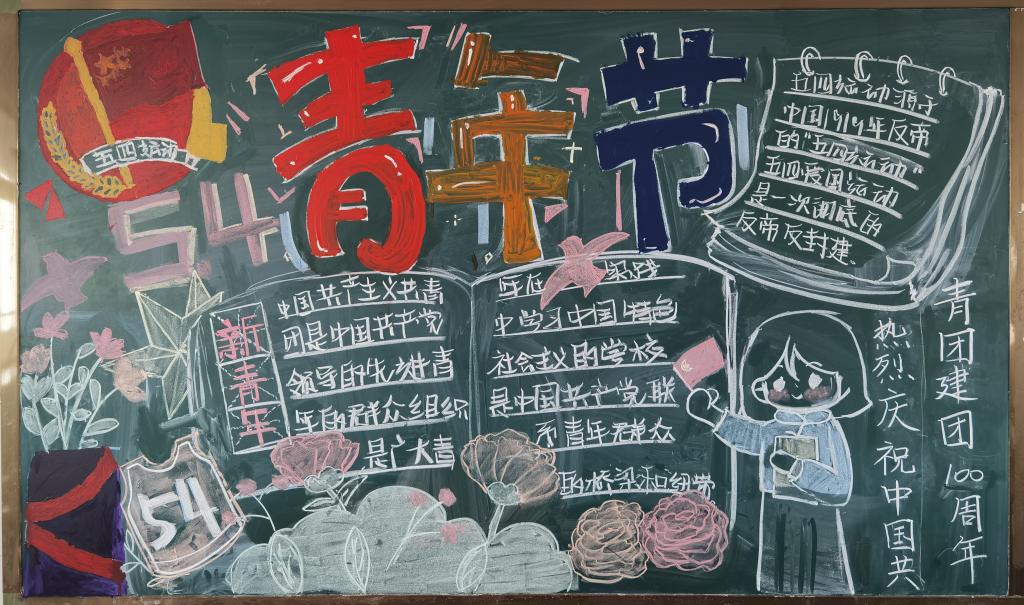 青年节
五四运动
5.4
五四运动源于
中国1919年反帝
的"五四运动"
五四爱国运动
是一次彻底的
反帝反封建
新青年
中国共产主义共青
团是中国共产党
领导的先进青
年的群众组织
是广大青
年在
实践
中学习中国特色
社会主义的学校
是中国共产党联
系青年群众
的桥梁和纽带
54
热烈庆祝中国共
青团建团100周年